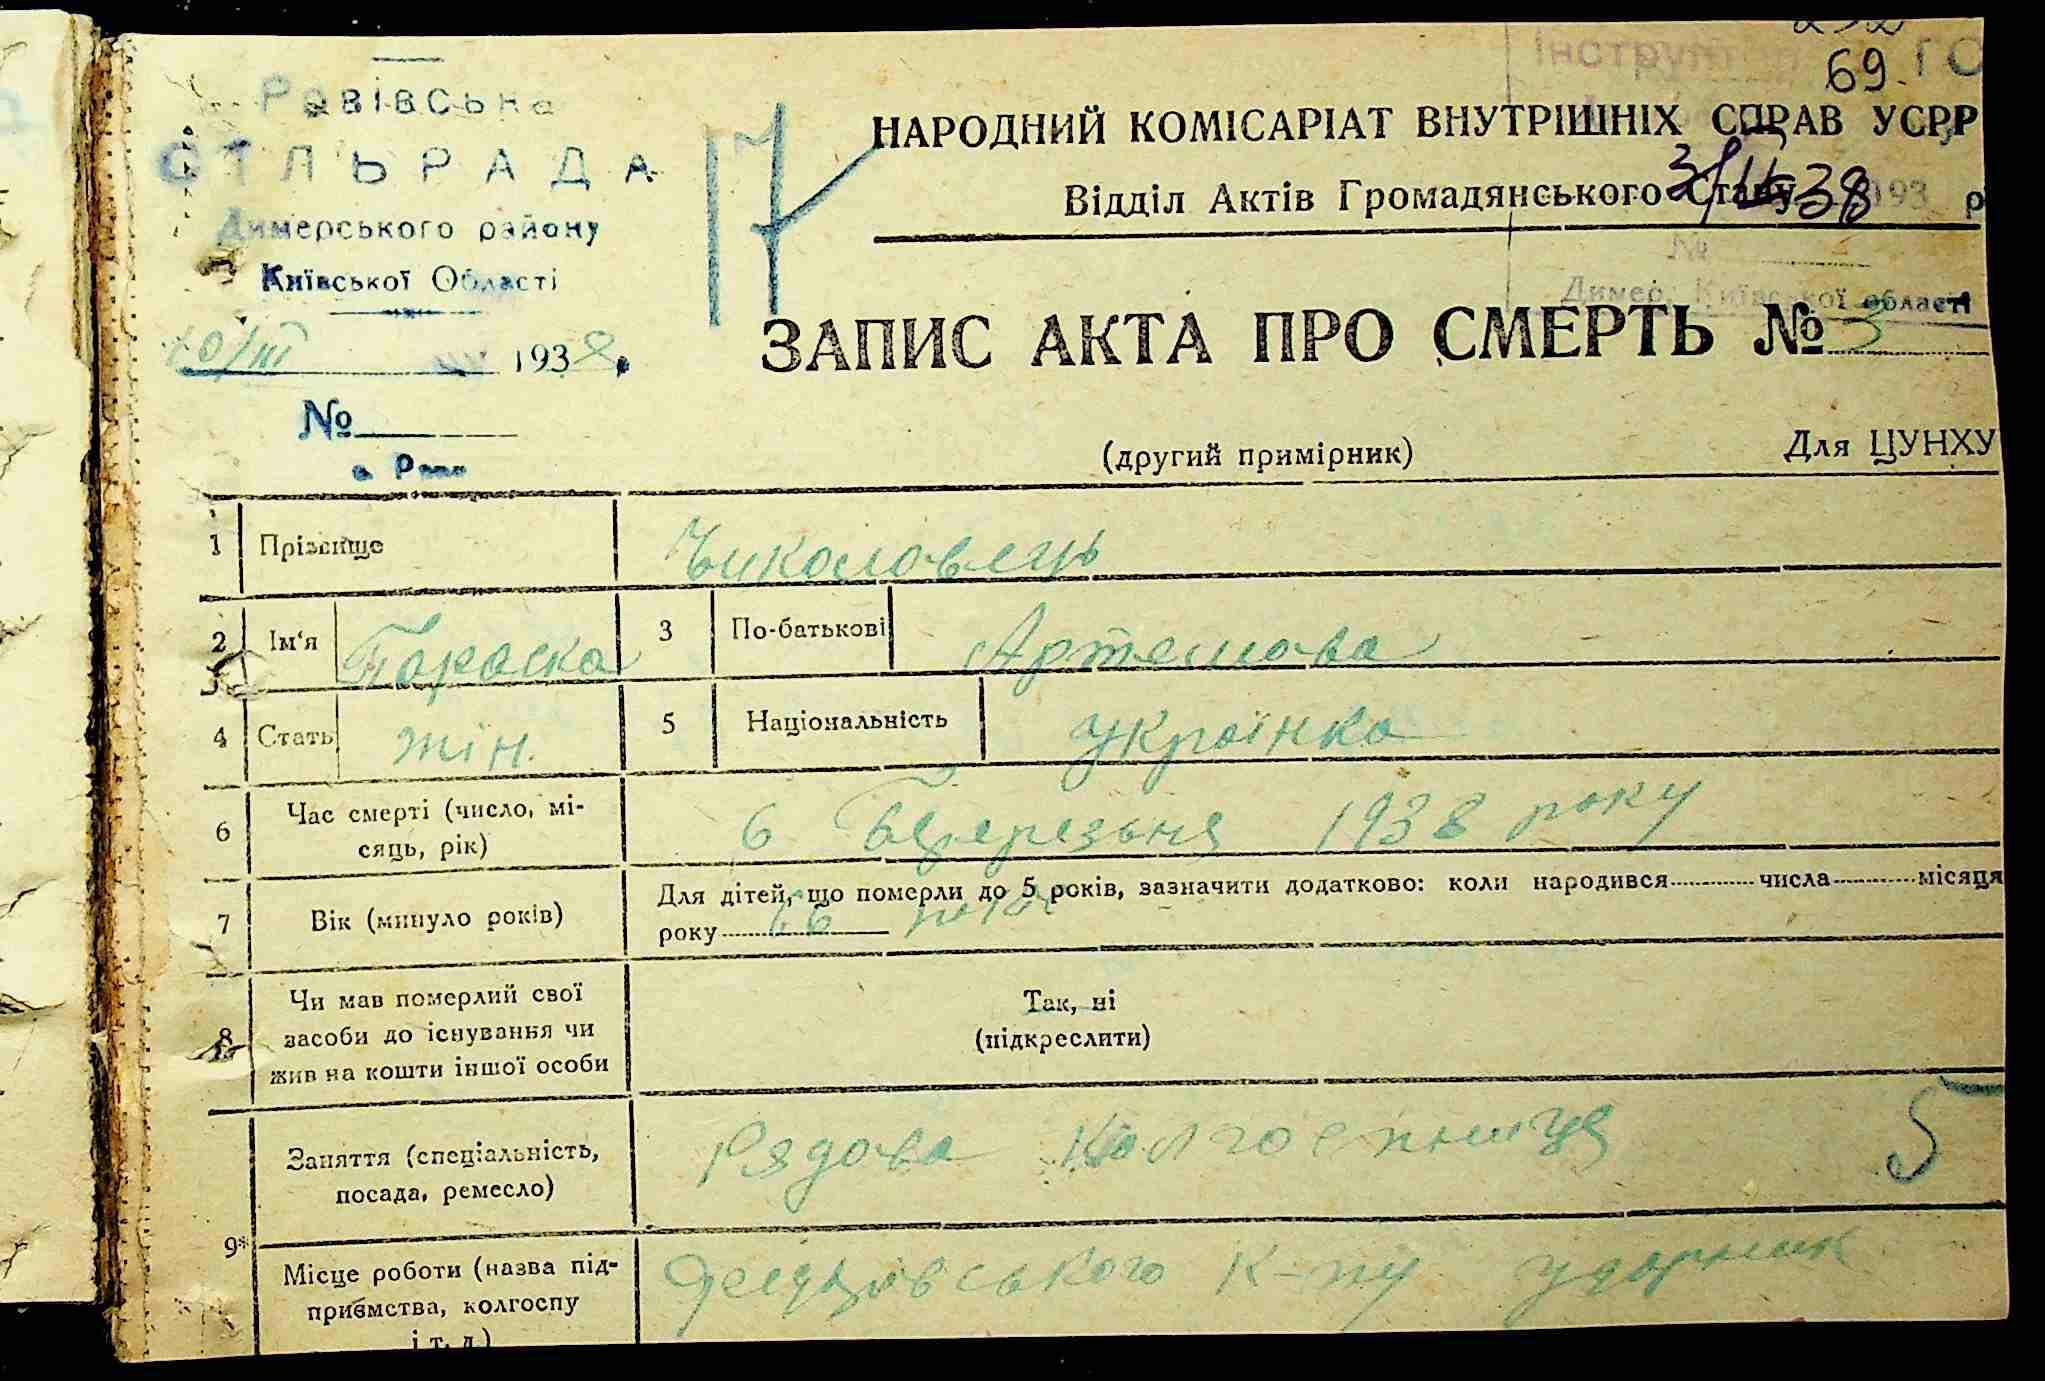 69
Інструктор
Равівська
СІЛЬРАДА
Димерського району
Київської Області
10/III 1938
№
с Рови
17
НАРОДНИЙ КОМІСАРІАТ ВНУТРІШНІХ СПРАВ УСРР
Відділ Актів Громадянського Стану
38 193 р
№
Димер, Київської області
ЗАПИС АКТА ПРО СМЕРТЬ № 3
(другий примірник) Для ЦУНХУ
1 Прізвище Чиколовець
2 Ім'я Параска 3 По-батькові Артемова
4 Стать жін. 5 Національність українка
6 Час смерті (число, мі-
сяць, рік) 6 Березьня 1938 року
7 Вік (минуло років) Для дітей, що померли до 5 років, зазначити додатково: коли народився числа місяця
року
8 Чи мав померлий свої
засоби до існування чи
жив на кошти іншої особи
Так, ні
(підкреслити)
Заняття (спеціальність,
посада, ремесло) Рядова Колгоспниця 5
9* Місце роботи (назва під-
приємства, колгоспу
і т. д.) К-пу Ударник